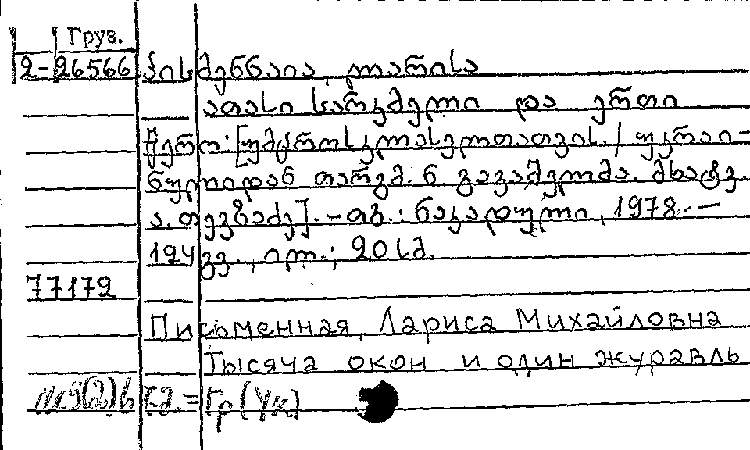 Груз.
2-26566 პისმენნაია, ლარისა
ათასი სარკმელი და ერთი
წერო: [უმცროსკლასელთათვის. / უკრაი-
ნულიდან თარგმ. ნ. გაგაშელმა. მხატვ.
ა. თევზაძე]. - თბ.: ნაკადული, 1978. -
124 გვ., ილ.; 20 სმ.
77172
Письменная, Лариса Михайловна
Тысяча окон и один журавль
Гр (Ук)